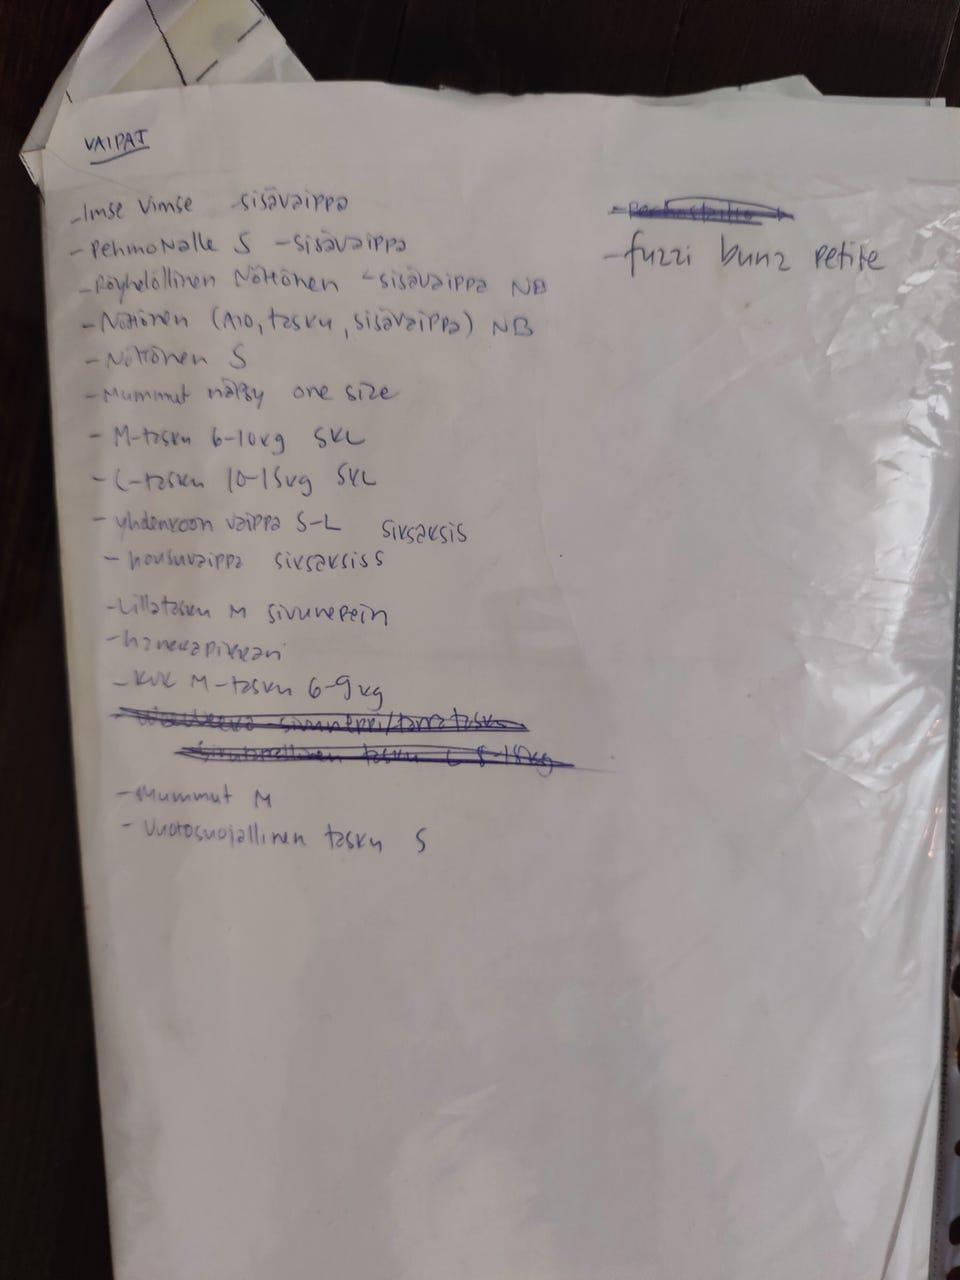 VAIPAT
- Imse Vimse sisävaippa
- PehmoNalle S - sisävaippa
- Röyhelöllinen Nöttönen - sisävaippa NB
- Nöttönen (AIO, tasku, sisävaippa) NB
- Nöttönen S
- Mummut näpsy one size
- M-tasku 6-10kg SKL
- L-tasku 10-15kg SKL
- yhdenkoon vaippa S-L siksaksis
- housuvaippa siksaksis S
- Lillatasku M sivunepein
- hanskapikkari
- KVK M-tasku 6-9kg
- sivuneppi/tarratasku
tasku L 8-18kg
- Mummut M
- Vuotosuojallinen tasku S
- fuzzi bunz petite